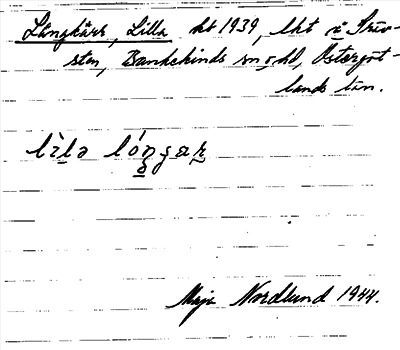 Långkärr, Lilla ht 1939, lht i Skev-
sten, Bankekinds sn o. hd, Östergöt-
lands län.
lìlə lóŋɡaɽ
Maja Nordlund 1944.